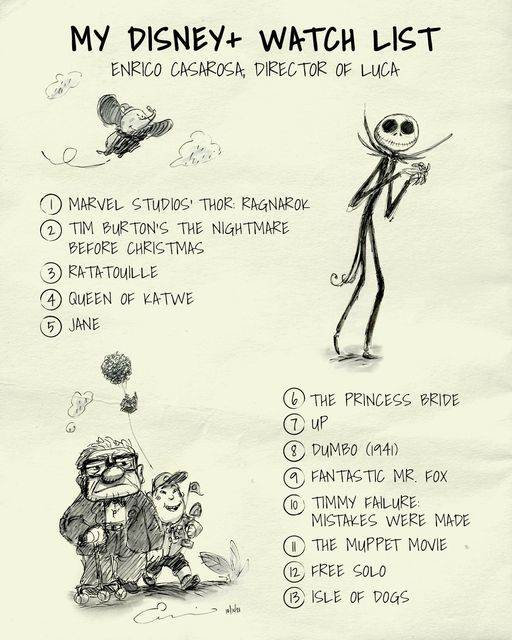 MY DISNEY+ WATCH LIST
ENRICO CASAROSA, DIRECTOR OF LUCA
1 MARVEL STUDIOS' THOR: RAGNAROK
2 TIM BURTON'S THE NIGHTMARE
BEFORE CHRISTMAS
3 RATATOUILLE
4 QUEEN OF KATWE
5 JANE
6 THE PRINCESS BRIDE
7 UP
8 DUMBO (1941)
9 FANTASTIC MR. FOX
10 TIMMY FAILURE:
MISTAKES WERE MADE
11 THE MUPPET MOVIE
12 FREE SOLO
13 ISLE OF DOGS